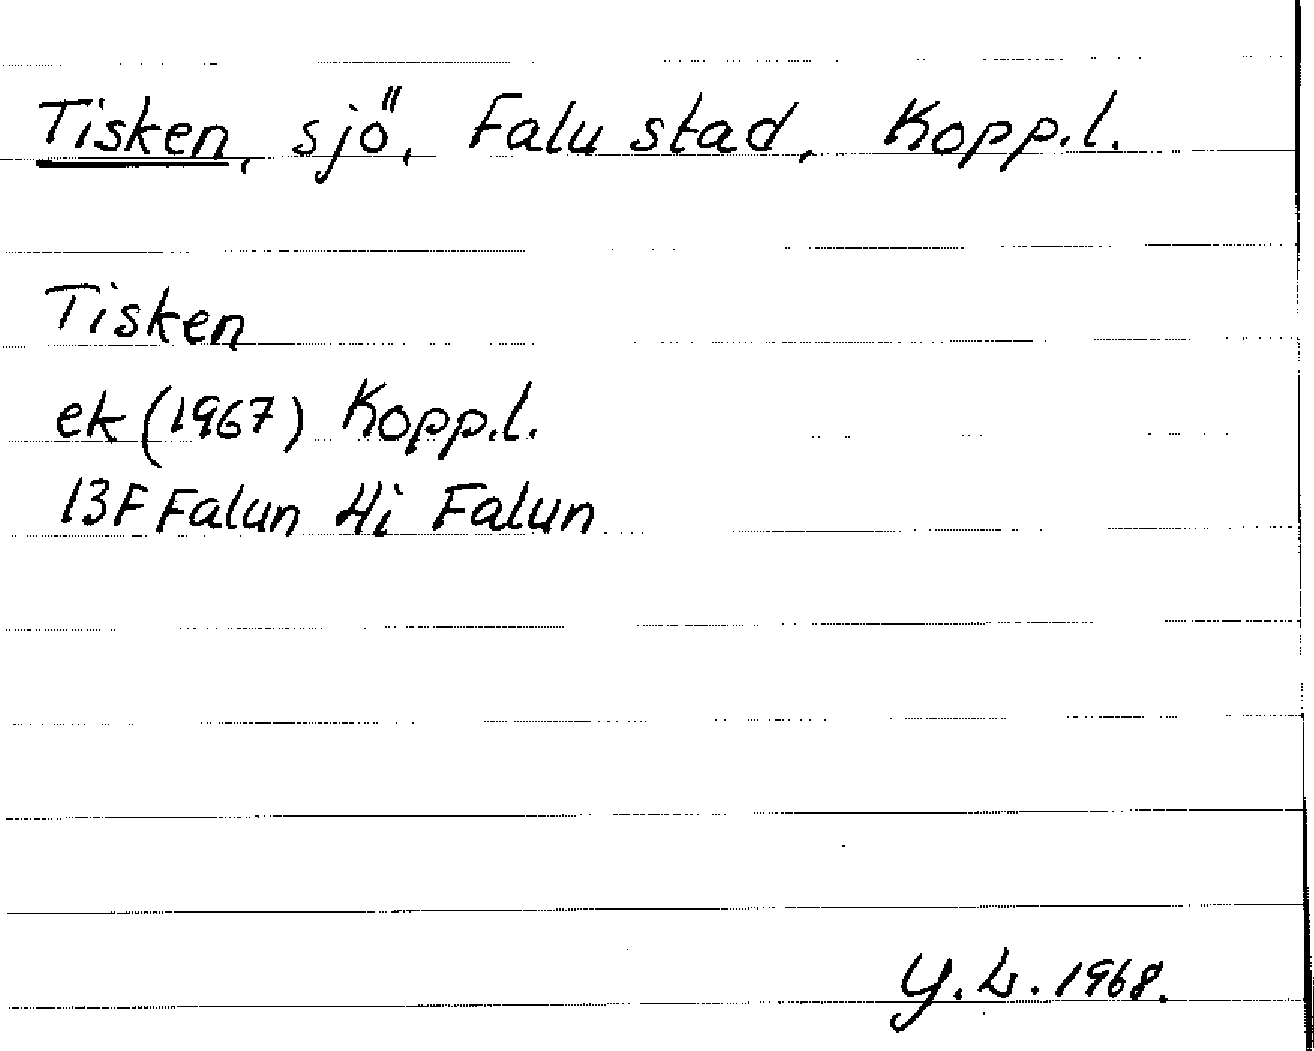 Tisken, sjö, Falu stad, Kopp.l.
Tisken
ek (1967) Kopp.l.
13F Falun 4i Falun
Y.L. 1968.